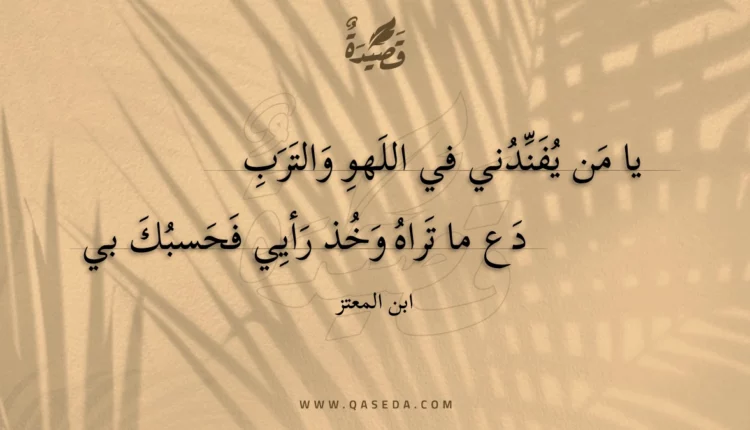 قَصِيدَةٌ
يا مَن يُفَنِّدُني في اللَهوِ وَالتَرَبِ
دَع ما تَراهُ وَخُذ رَأيِي فَحَسبُكَ بي
ابن المعتز
WWW.QASEDA.COM